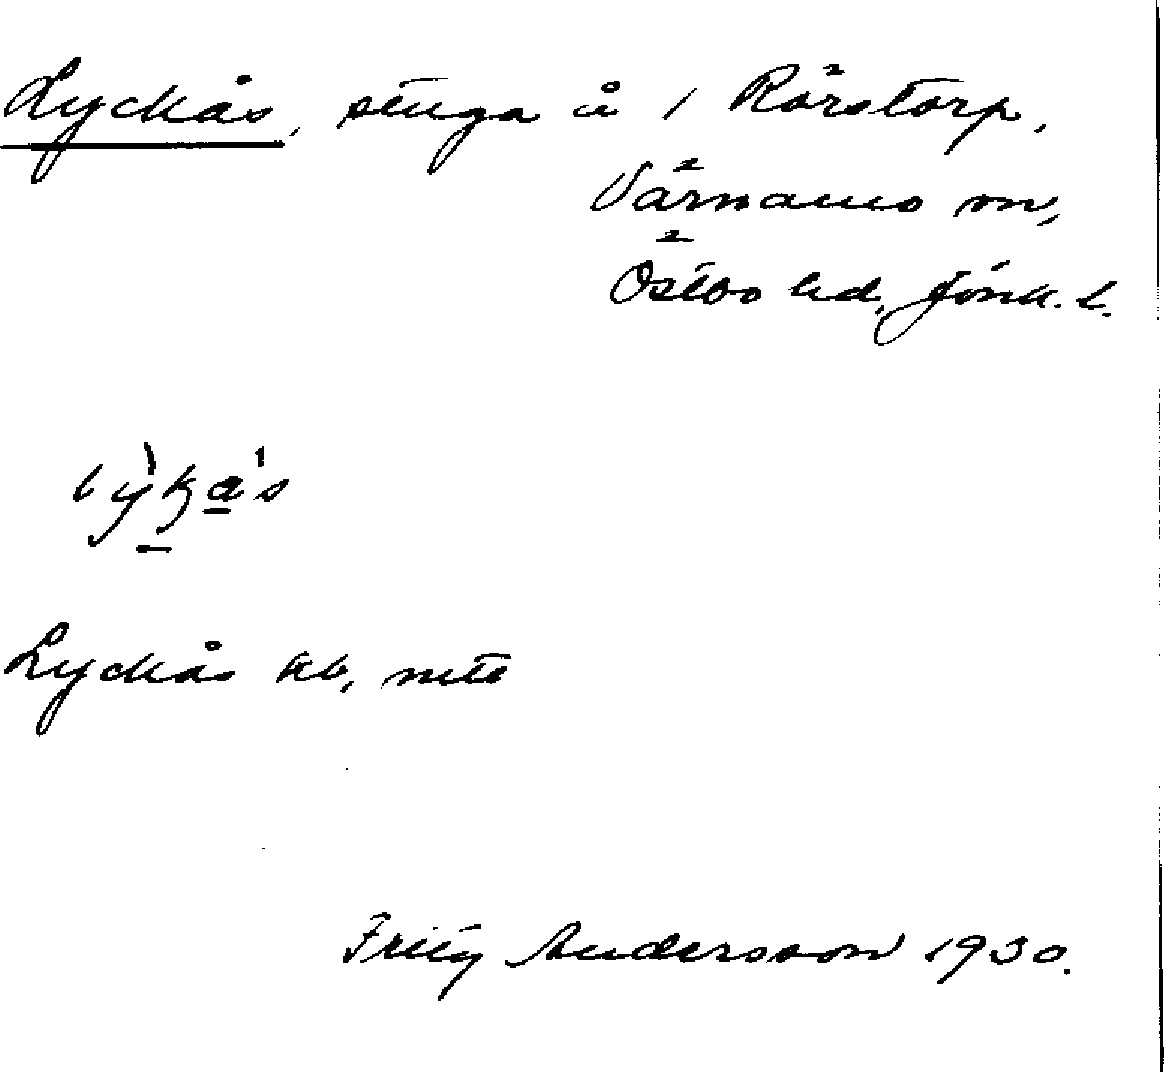 Lyckås, stuga å 1 Rörstorp,
Värnamo sn,
Östbo hd, Jönk. l.
Lyckås kb,
Fritz Andersson 1930.